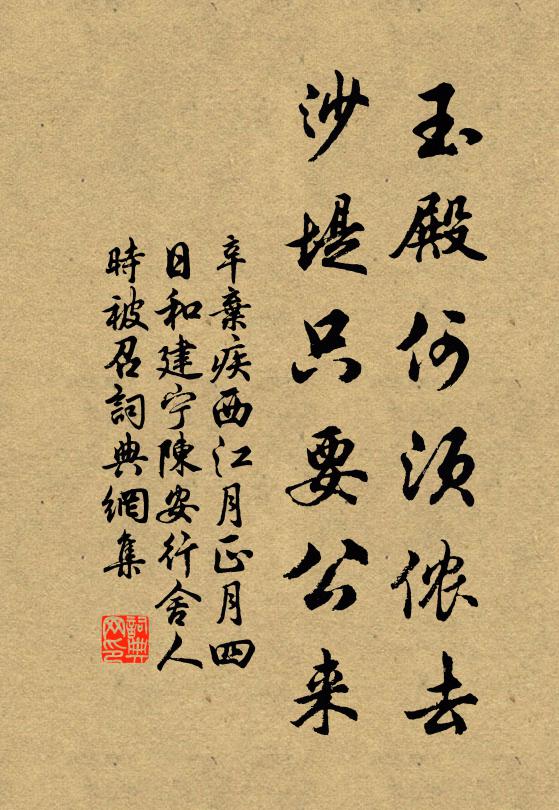 玉殿何须侬去
沙堤只要公来
辛棄疾西江月正月四
日和建宁陳安行舍人
時被召詞典網集
詞典网印